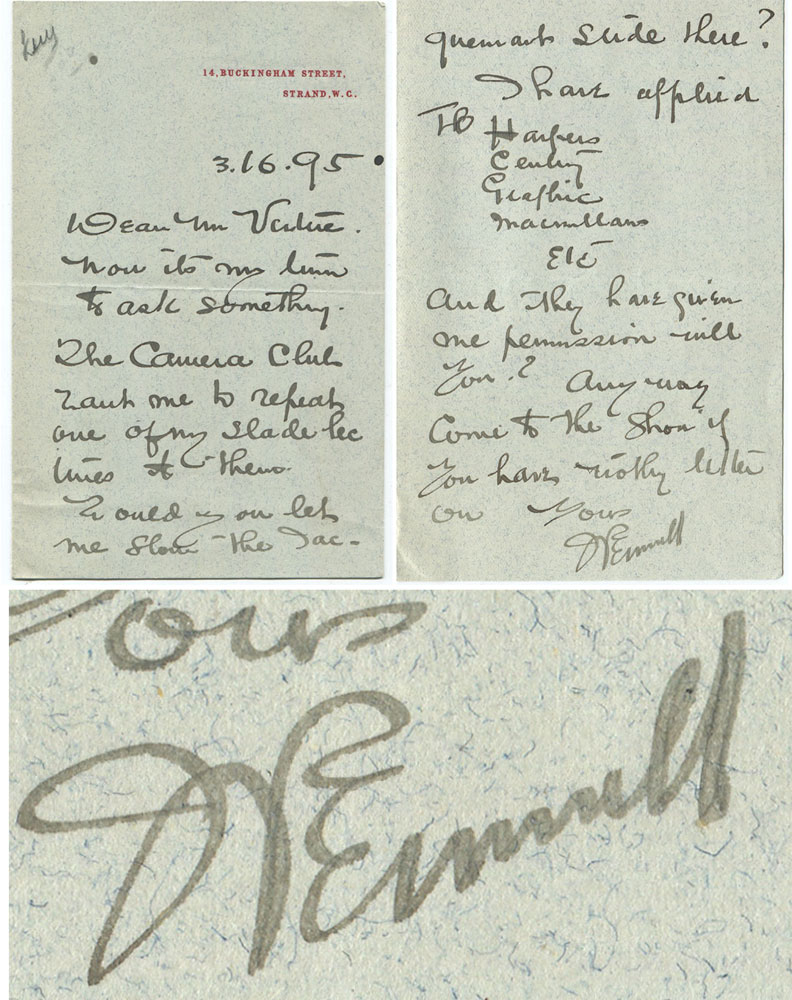 14, BUCKINGHAM STREET,
STRAND, W.C.
3.16.95
Dear Mr Virtue.
Now its my turn
to ask something.
The Camera Club
want me to repeat
one of my Slade lec
tures to them.
Would you let
me show the Jac-
quemart slide there?
I have applied
To Harpers
Century
Graphic
Macmillans
Etc
And they have given
me permission will
You? Anyway
Come to the Show if
You have nothg better
on Yours
J Pennell
Yours
J Pennell